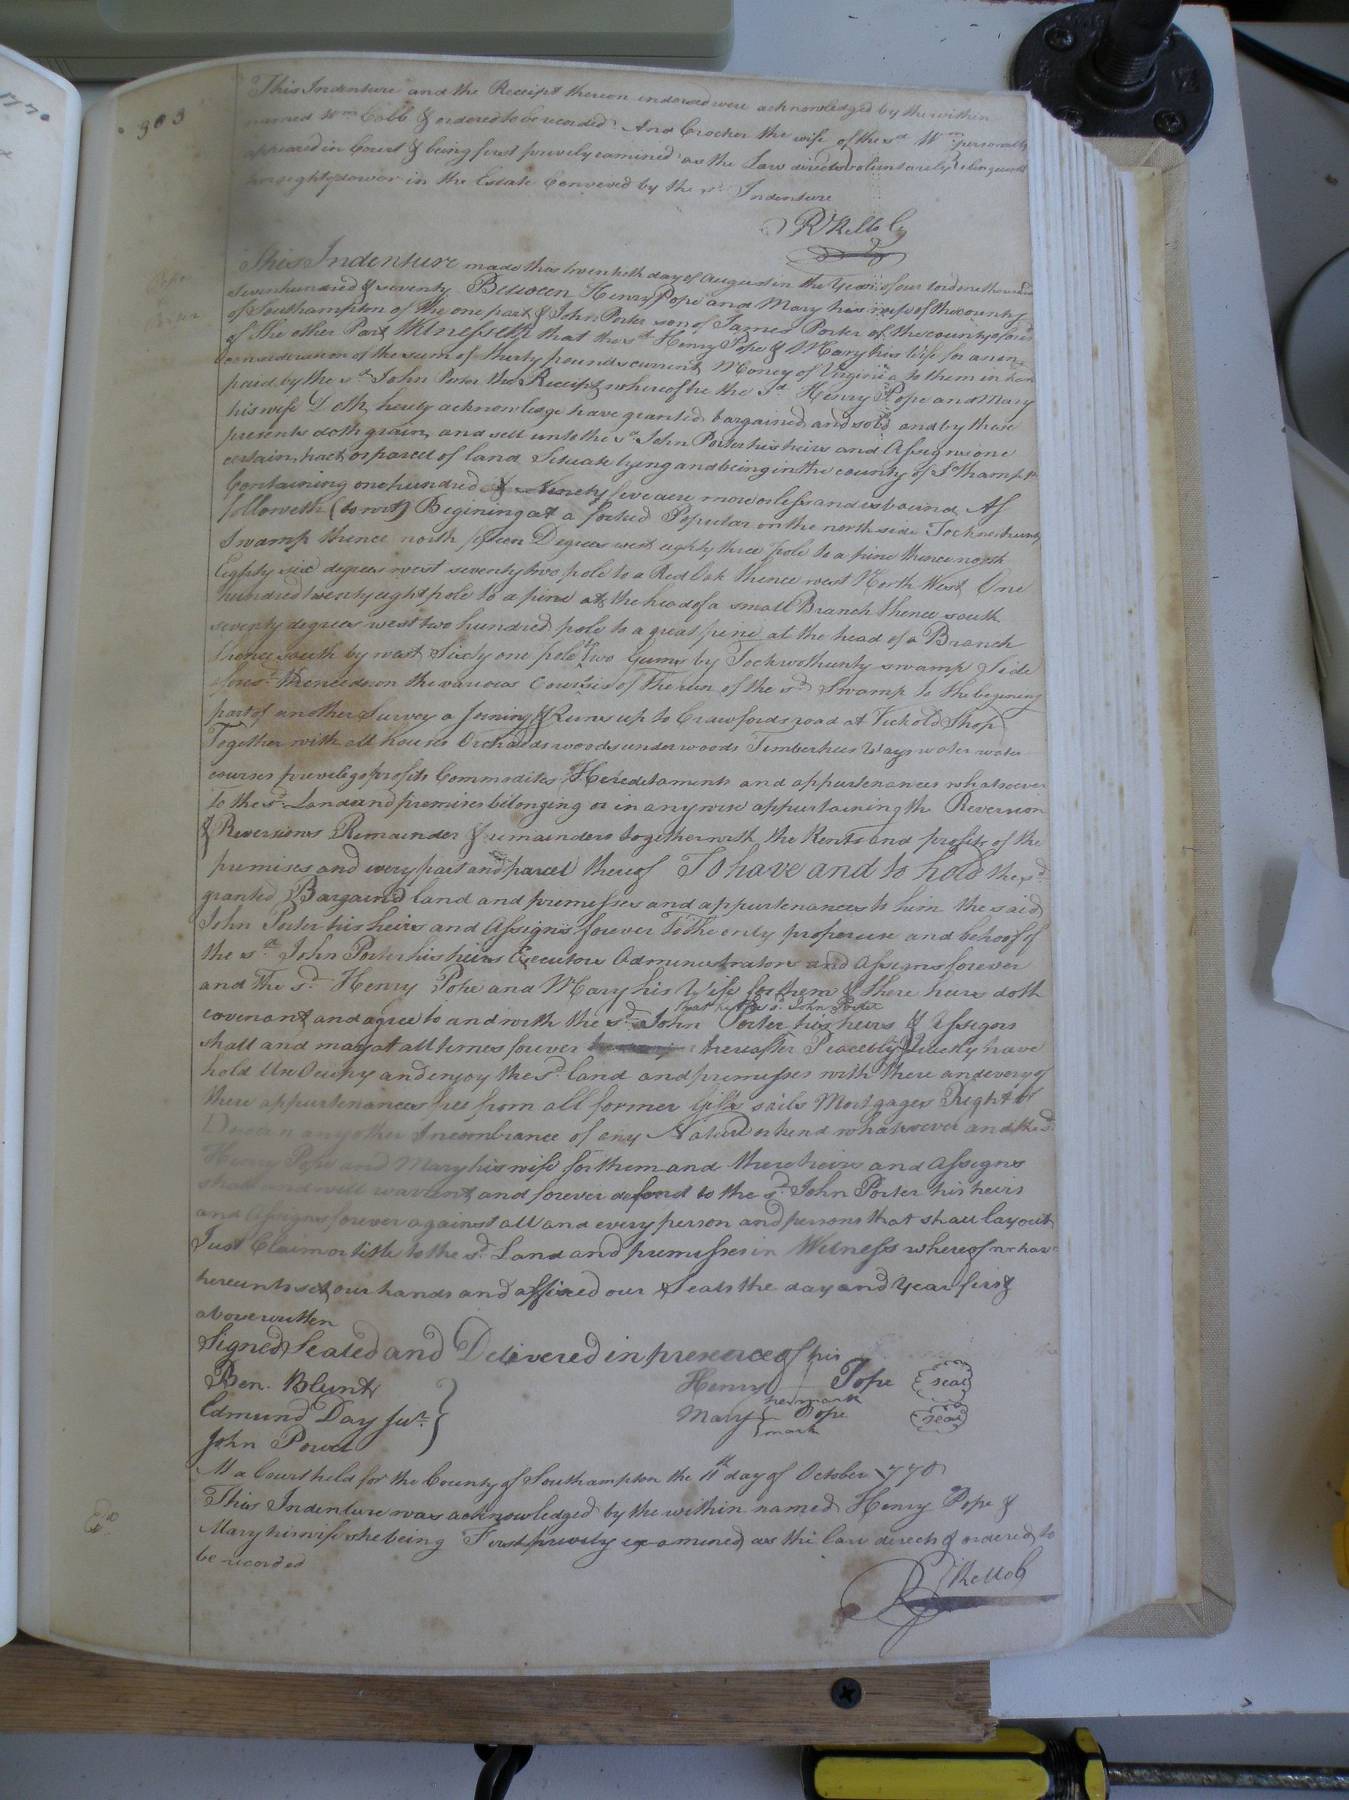 177.
303
This Indenture and the Receipt thereon indorsed were acknowledged by the within
named Wm Cobb & ordered to be recorded. And Crocker the wife of the sd. Wm personally
appeared in Court & being first privily examined as the Law directs voluntarily relinquish
her right of dower in the Estate Conveyed by the sd. Indenture
Pope
to
Porter
This Indenture made this twentieth day of August in the Year of our Lord one thousand
seven hundred & seventy Between Henry Pope and Mary his wife of the county
of Southampton of the one part & John Porter son of James Porter of the county aforesd
of The other Part Witnesseth that the sd Henry Pope & Mary his Wife for and in
consideration of the sum of Thirty pounds current Money of Virginia to them in hand
paid by the sd. John Porter the Receipt whereof he the sd Henry Pope and Mary
his wife Doth hereby acknowledge have granted bargained and sold and by these
presents doth grain, and sell unto the sd John Porter his heirs and Assigns one
certain tract or parcel of land Situate lying and being in the county of So.thampn
Containing one hundred & Ninety five acre more or less and is bound As
followeth (to wit) Begining at a forked Popular on the north side Tockwothunty
Swamp thence north fifteen Degrees west eighty three pole to a pine thence north
Eighty six degrees west seventy two pole to a Red Oak thence west North West One
hundred twenty eight pole to a pine at the head of a small Branch thence south
seventy degrees west two hundred pole to a great pine at the head of a Branch
thence south by west Sixty one pole to two Gums by Tockwothunty swamp Side
aforesd. thence down the various Courses of The run of the sd. Swamp to the begining
part of another Survey a Joining & Runs up to Crawfords road at Old Shop
Together with all houses Orchards woods under woods Timber trees Ways water water
courses privileges profits Commodites Hereditaments and appurtenances whatsoever
to the sd. Land and premises belonging or in any wise appurtaining the Reversion
& Reversions Remainder & remainders together with the Rents and profits of the
premises and every part and parcel thereof To have and to hold the sd.
granted & Bargaind land and premisses and appurtenances to him the said
John Porter his heirs and Assigns forever To The only proper use and behoof of
the sd. John Porter his heirs Executors Administrators and Assigns forever
and The sd. Henry Pope and Mary his Wife for them & there heirs doth
that he the sd. John Porter
covenant and agree to and with the sd. John Porter his heirs & Assigns
shall and may at all times forever hereafter Peacebly & Quietly have
hold Use Occupy and enjoy the sd. land and premisses with there and every of
there appurtenances free from all former Gifts sails Mortgages Right of
Dower in any other Incombrance of any Nature or kend whatsoever and the sd.
Henry Pope and Mary his wife for them and there heirs and Assigns
shall and will warrant and forever defend to the sd. John Porter his heirs
and Assigns forever against all and every person and persons that shall lay out
Just Claim or title to the sd. Land and premisses in Witness whereof we have
hereunto set our hands and affixed our Seals the day and Year first
above written
Signed Sealed and Delivered in presence of his
Ben. Blunt Henry Pope seal
Edmund Day Junr. her mark
John Mary Pope seal
mark
At a Court held for the County of Southampton the 11th day of October 1770
This Indenture was acknowledged by the within named Henry Pope &
Mary his wife she being First privily examined as the law directs & ordered to
be recorded
Exd